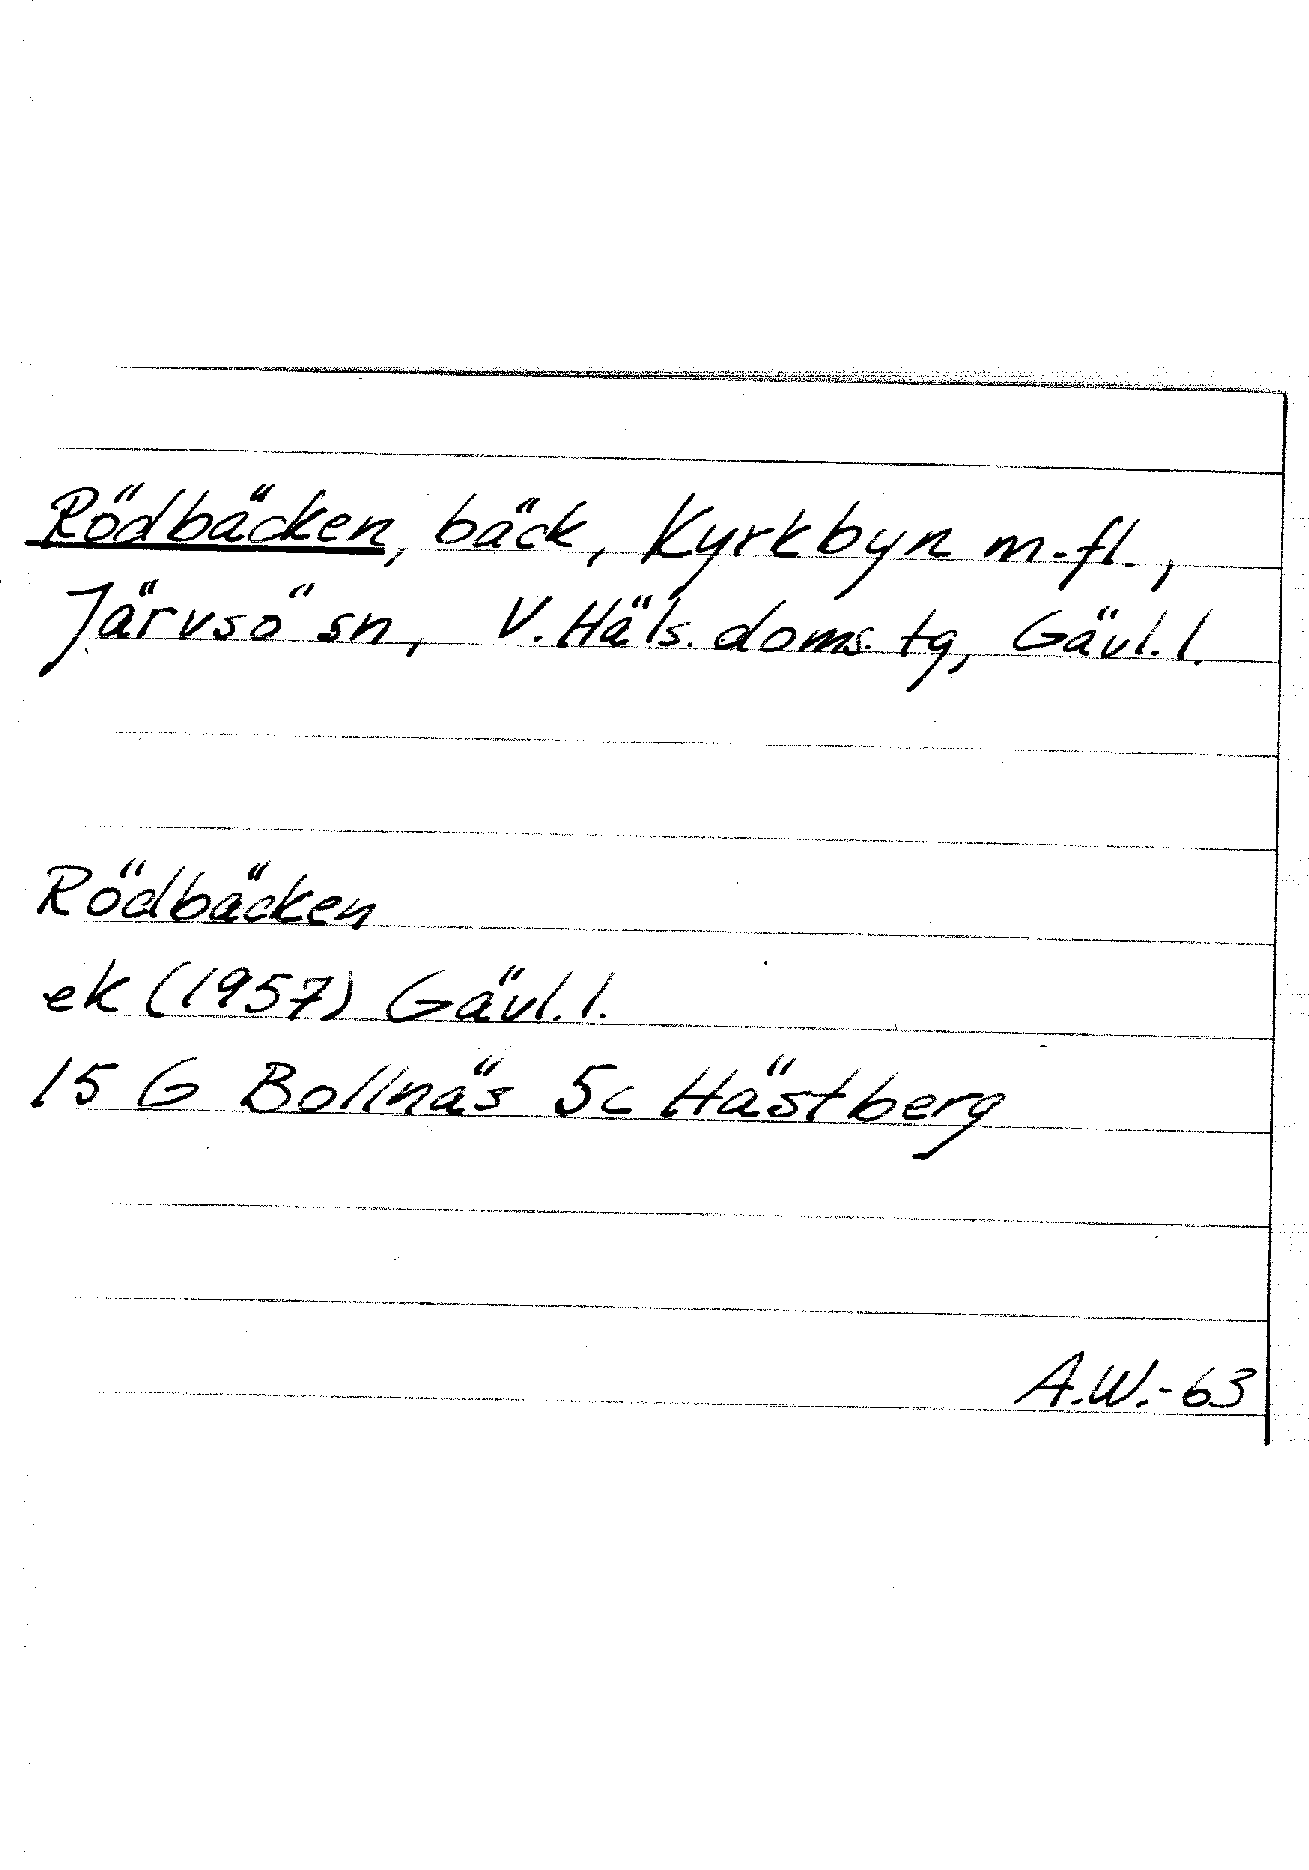 Rödbäcken, bäck, Kyrkbyn m.fl.,
Järvsö sn, V. Häls. doms. tg, Gävl. l.
Rödbäcken
ek (1957) Gävl. l.
15 G Bollnäs 5c Hästberg
A.W.-63